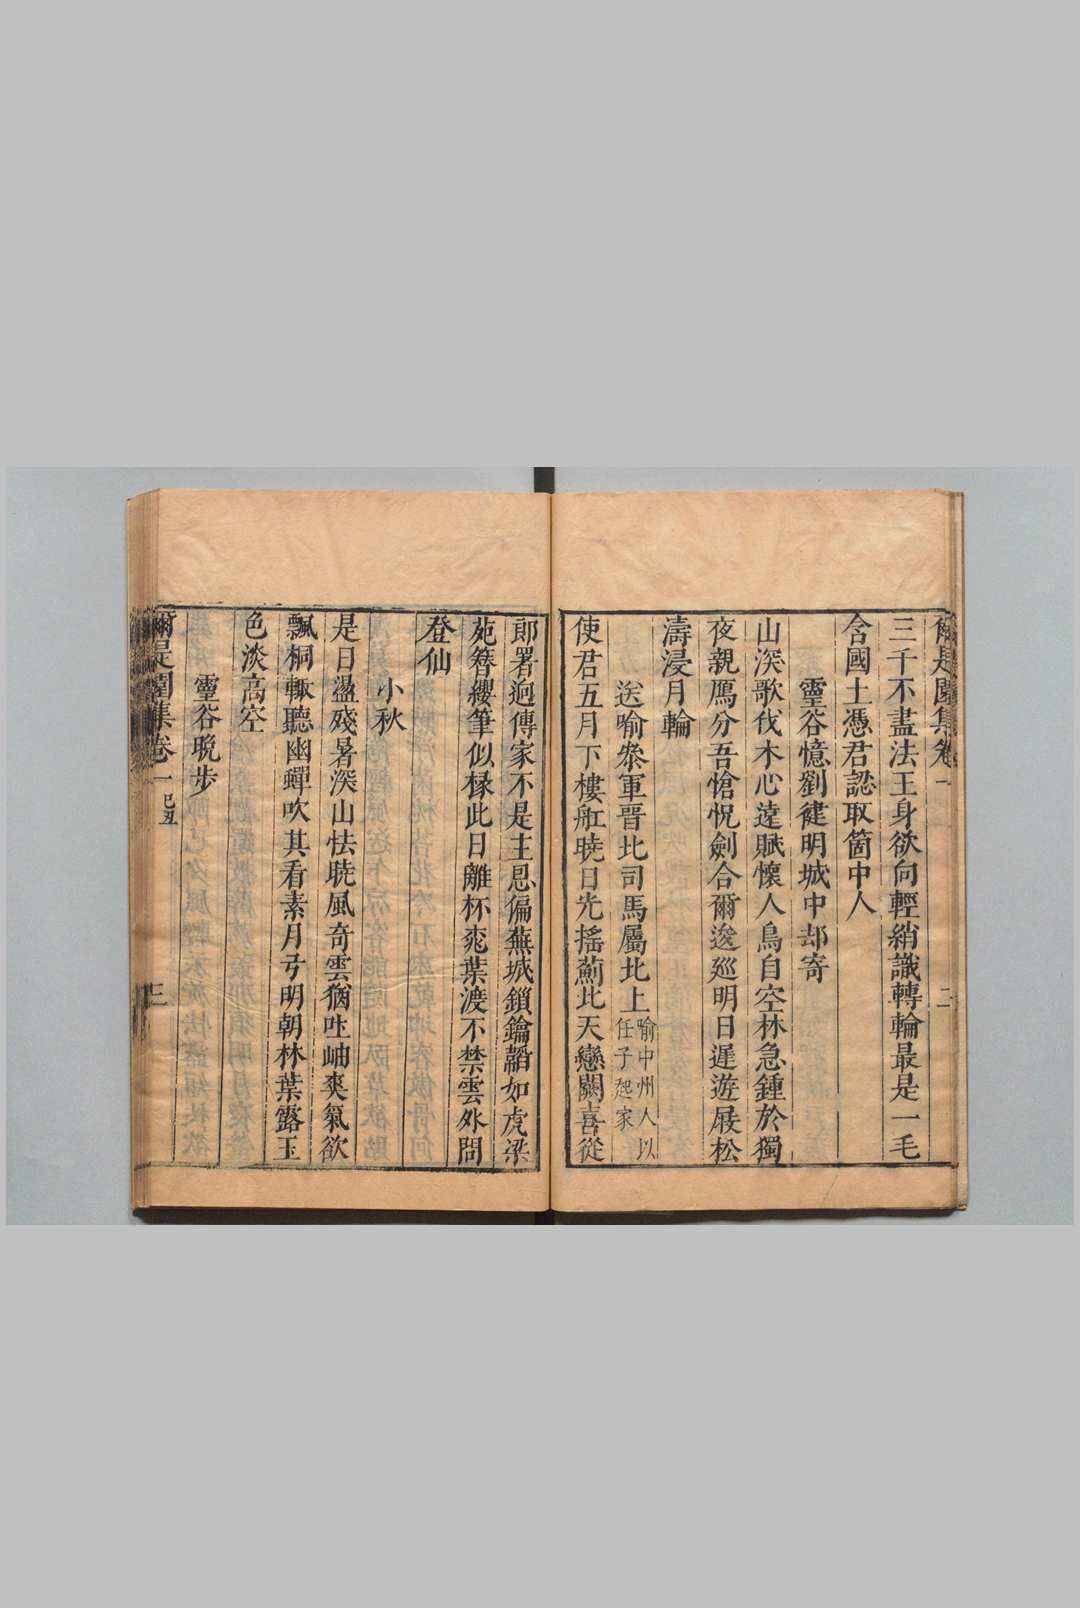 爾是園集卷一 二
三千不盡法王身欲向輕綃識轉輪最是一毛
含國土憑君認取箇中人
靈谷憶劉褄明城中却寄
山深歌伐木心遠賦懷人鳥自空林急鍾於獨
夜親鴈分吾愴怳劍合爾逡廵明日遅遊屐松
濤浸月輪
送喻叅軍晋北司馬屬北上喻中州人以
任子起家
使君五月下樓舡曉日光搖薊北天戀闕喜從
郎署逈傳家不是主恩偏蕪城鎖鑰韜如虎梁
苑簪纓筆似椽此日離杯桃葉渡不禁雲外問
登仙
小秋
是日盪殘暑深山怯曉風奇雲猶吐岫爽氣欲
飄桐輙聽幽蟬吹其看素月弓明朝林葉露玉
色淡高空
靈谷晚步
爾是園集卷一 己丑 三